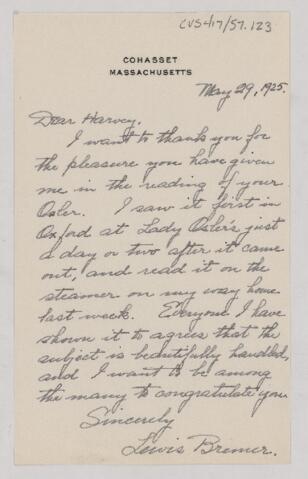 CVS 417/57.123
COHASSET
MASSACHUSETTS
May 29, 1925.
Dear Harvey,
I want to thank you for
the pleasure you have given
me in the reading of your
Osler. I saw it first in
Oxford at Lady Osler's just
a day or two after it came
out, and read it on the
steamer on my way home
last week. Everyone I have
shown it to agrees that the
subject is beautifully handled,
and I want to be among
the many to congratulate you
Sincerely
Lewis Bremer.